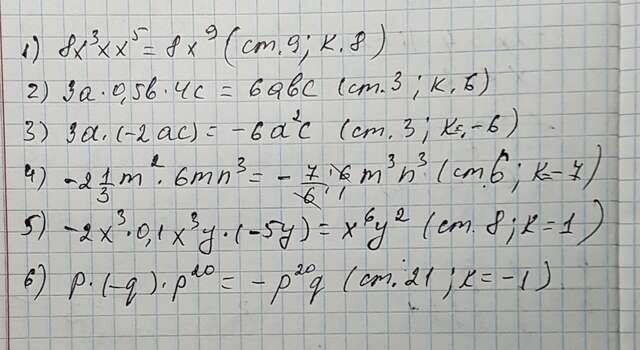 1) 8x³xx⁵ = 8x⁹ (ст. 9; к. 8)
2) 3a · 0,5b · 4c = 6abc (ст. 3; к. 6)
3) 3a · (-2ac) = -6a²c (ст. 3; к=-6)
4) -2 1/3 m² · 6mn³ = - 7·6/6·1 m³n³ (ст. 6; к=-7)
5) -2x³ · 0,1x³y · (-5y) = x⁶y² (ст. 8; к=1)
6) p · (-q) · p²⁰ = -p²⁰q (ст. 21; к=-1)